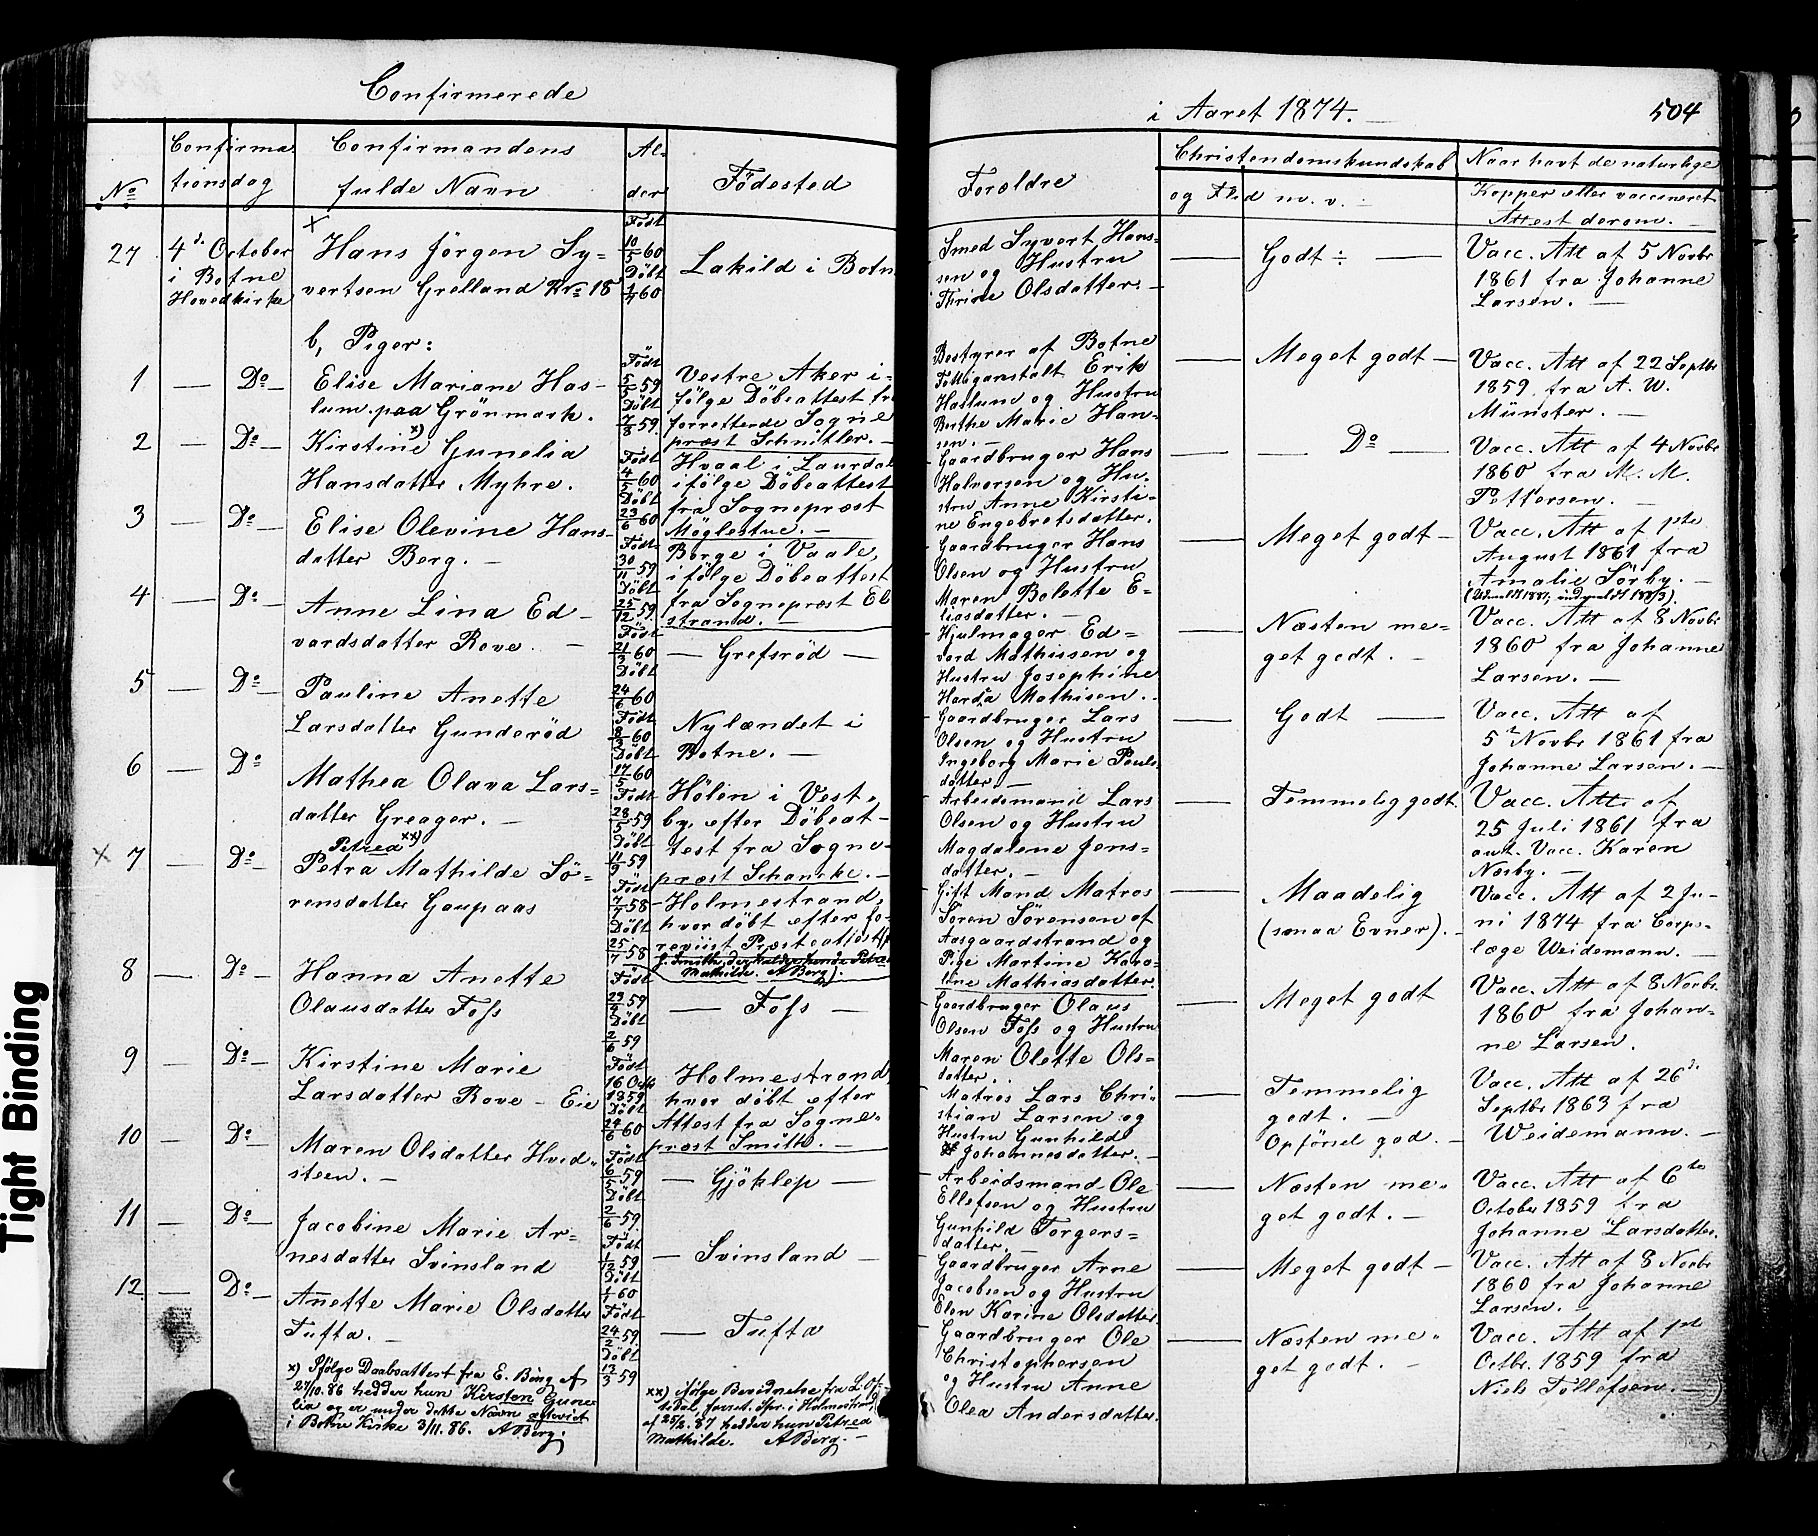 Confirmerede
i Aaret 1874.
504
No
Confirma
tionsdag
Confirmandens
fulde Navn
Al-
der
Födested
Forældre
Christendomskundskab
og Flid m. v.
Naar havt de naturlige
Kopper eller vaccineret
Attest derom.
27
4de October
i Botne
Hovedkirke
Hans Jörgen Sy-
vertsen Grelland No 18
Födt
10/5 60
Döbt
1/7 60
Lakild i Botn
Smed Syvert Han-
sen og Hustru
Thrine Olsdatter. -
Godt ÷
Vacc. Att af 5 Novbr
1861 fra Johanne
Larsen. -
b, Piger:
1
Do
Elise Mariane Has-
lum paa Grönmark.
Födt
5/5 59
Döbt
7/8 59.
Vestre Aker i-
følge Döbeattest fr
forrettende Sogne
præst Schnitler. -
Bestyrer af Botne
Fattiganstalt Erik
Haslum og Hustru
Berthe Marie Han-
sen. -
Meget godt -
Vacc. Att af 22 Septbr
1859 fra A. W.
Münster. -
2
Do
Kirstine x) Gunelia
Hansdatter Myhre.
Födt
4/5 60
Döbt
23/6 60
Hvaal i Laurdal
ifölge Döbeattest
fra Sognepræst
Möglestue. -
Gaardbruger Hans
Halvorsen og Hu-
stru Anne Kirsti-
ne Engebretsdatter.
Do
Vacc. Att af 4 Novbr
1860 fra M. M.
Pettersen. -
3
Do
Elise Olevine Hans-
datter Berg. -
Födt
30/11 59
Döbt
25/12 59.
Borge i Vaale,
ifölge Döbeattest
fra Sognepræst El
strand. -
Gaardbruger Hans
Olsen og Hustru
Maren Bolette E-
liasdatter. -
Meget godt -
Vacc. Att af 1ste
August 1861 fra
Amalie Sörby. -
4
Do
Anne Lina Ed-
vardsdatter Rove. -
Födt
21/3 60
Döbt
24/6 60
- Grefsröd -
Hjulmager Ed-
vard Mathissen og
Hustru Josephine
Harda Mathisen.
Næsten me-
get godt. -
Vacc. Att af 8 Novbr
1860 fra Johanne
Larsen. -
5
Do
Pauline Anette
Larsdatter Gunderöd
Födt
8/3 60
Döbt
17/5 60
Nylændet i
Botne. -
Gaardbruger Lars
Olsen og Hustru
Ingeborg Marie Pouls-
datter -
Godt
Vacc. Att af
5te Novbr 1861 fra
Johanne Larsen. -
6
Do
Mathea Olava Lars-
datter Greager. -
Födt
28/5 59
Döbt
11/9 59
Hölen i Vest-
by, efter Döbeat-
test fra Sogne-
præst Schancke. -
Arbeidsmand Lars
Olsen og Hustru
Magdalene Jens-
datter. -
Temmelig godt.
Vacc. Att. af
25 Juli 1861 fra
aut. Vacc. Karen
Nesby. -
x 7
Do
Petrea xx)
Petra Mathilde Sö-
rensdatter Gaupaas
Födt
7/7 58
Döbt
25/7 58
Holmestrand,
hvor döbt efter fo-
reviist Præsteattest
f. Smith, der kalder hende Petrea
Mathilde. A Berg).
Gift Mand Matros
Sören Sörensen af
Aasgaardstrand og
Pige Martine Karo-
line Mathiasdatter.
Maadelig
(smaa Evner). -
Vacc. Att af 2 Ju-
ni 1874 fra Corps-
læge Weidemann. -
8
Do
Hanna Anette
Olausdatter Foss
Födt
Döbt
2/6 59
- Foss -
Gaardbruger Olaus
Olsen Foss og Hustru
Maren Olette Ols-
datter.
Meget godt
Vacc. Att af 8 Novbr.
1860 fra Johan-
ne Larsen.
9
Do
Kirstine Marie
Larsdatter Rove - Eie
Födt
16 Octb
1859
Döbt
24/6 60
Holmestrand,
hvor döbt efter
Attest fra Sogne-
præst Smith. -
Matros Lars Chri-
stian Larsen og
Hustru Gunhild
Johannesdatter. -
Temmelig
godt. -
Opförsel god. -
Vacc. Att af 26de
Septbr 1863 fra
Weidemann. -
10
Do
Maren Olsdatter Hvid-
steen. -
Födt
6/5 59
Döbt
2/6 59.
- Gjöklep -
Arbeidsmand Ole
Ellefsen og Hustru
Gunhild Torgers-
datter. -
Næsten me-
get godt. -
Vacc. Att af 6te
October 1859 fra
Johanne Larsdatter.
11
Do
Jacobine Marie Ar-
nesdatter Svinsland
Födt
1/12 59
Döbt
1/1 60
- Svinsland -
Gaardbruger Arne
Jacobsen og Hustru
Elen Karine Olsdatter
Meget godt -
Vacc. Att af 8 Novbr
1860 fra Johanne
Larsen. -
12
Do
Anette Marie Olsdatter
Tufta. -
Födt
24/2 59
Döbt
13/3 59
- Tufta
Gaardbruger Ole
Christophersen
og Hustru Anne
Olea Andersdatter.
Næsten me-
get godt. -
Vacc. Att af 1ste
Octbr. 1859 fra
Niels Tollefsen. -
x) Ifölge Daabsattest fra E. Bing af
27/10. 86 hedder hun Kirsten Gune
lia og er under dette Navn
i Botne Kirke 3/11. 86. A Berg.
xx) ifölge Bevidnelse fra
i Holmestrand,
af 25/2. 87 hedder hun Petrea
Mathilde. A Berg. -
Tight Binding